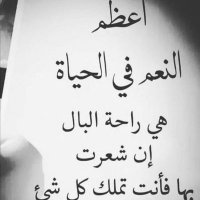 أعظم
النعم في الحياة
هي راحة البال
إن شعرت
بها فأنت تملك كل شئ